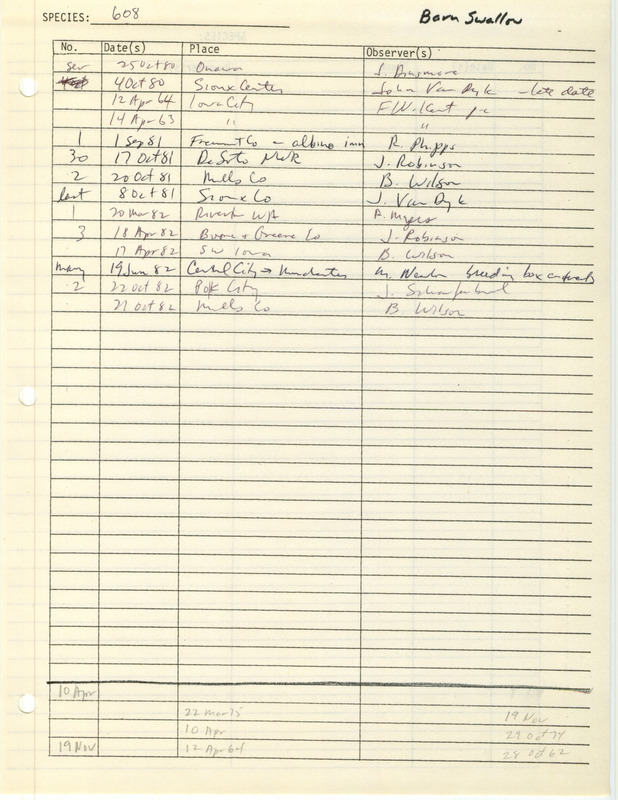 SPECIES: 608 Barn Swallow
No. Date(s) Place Observer(s)
sev 25 Oct 80 Onawa J. Dinsmore
4 Oct 80 Sioux Center John Van Dyk - late date
12 Apr 64 Iowa City F W. Kent pc
14 Apr 63 " "
1 1 Sep 81 Fremont Co - albino imm R. Phipps
30 17 Oct 81 DeSoto NWR J. Robinson
2 20 Oct 81 Mills Co B. Wilson
last 8 Oct 81 Sioux Co J. Van Dyk
1 20 Mar 82 Riverton WA P. Myers
3 18 Apr 82 Boone + Greene Co J. Robinson
17 Apr 82 SW Iowa B. Wilson
many 19 Jun 82 Central City → Manchester M. Newlon breed in box culverts
2 22 Oct 82 Polk City J.
21 Oct 82 Mills Co B Wilson
10 Apr
22 Mar 75 19 Nov
10 Apr 29 Oct 74
19 Nov 12 Apr 64 28 Oct 62